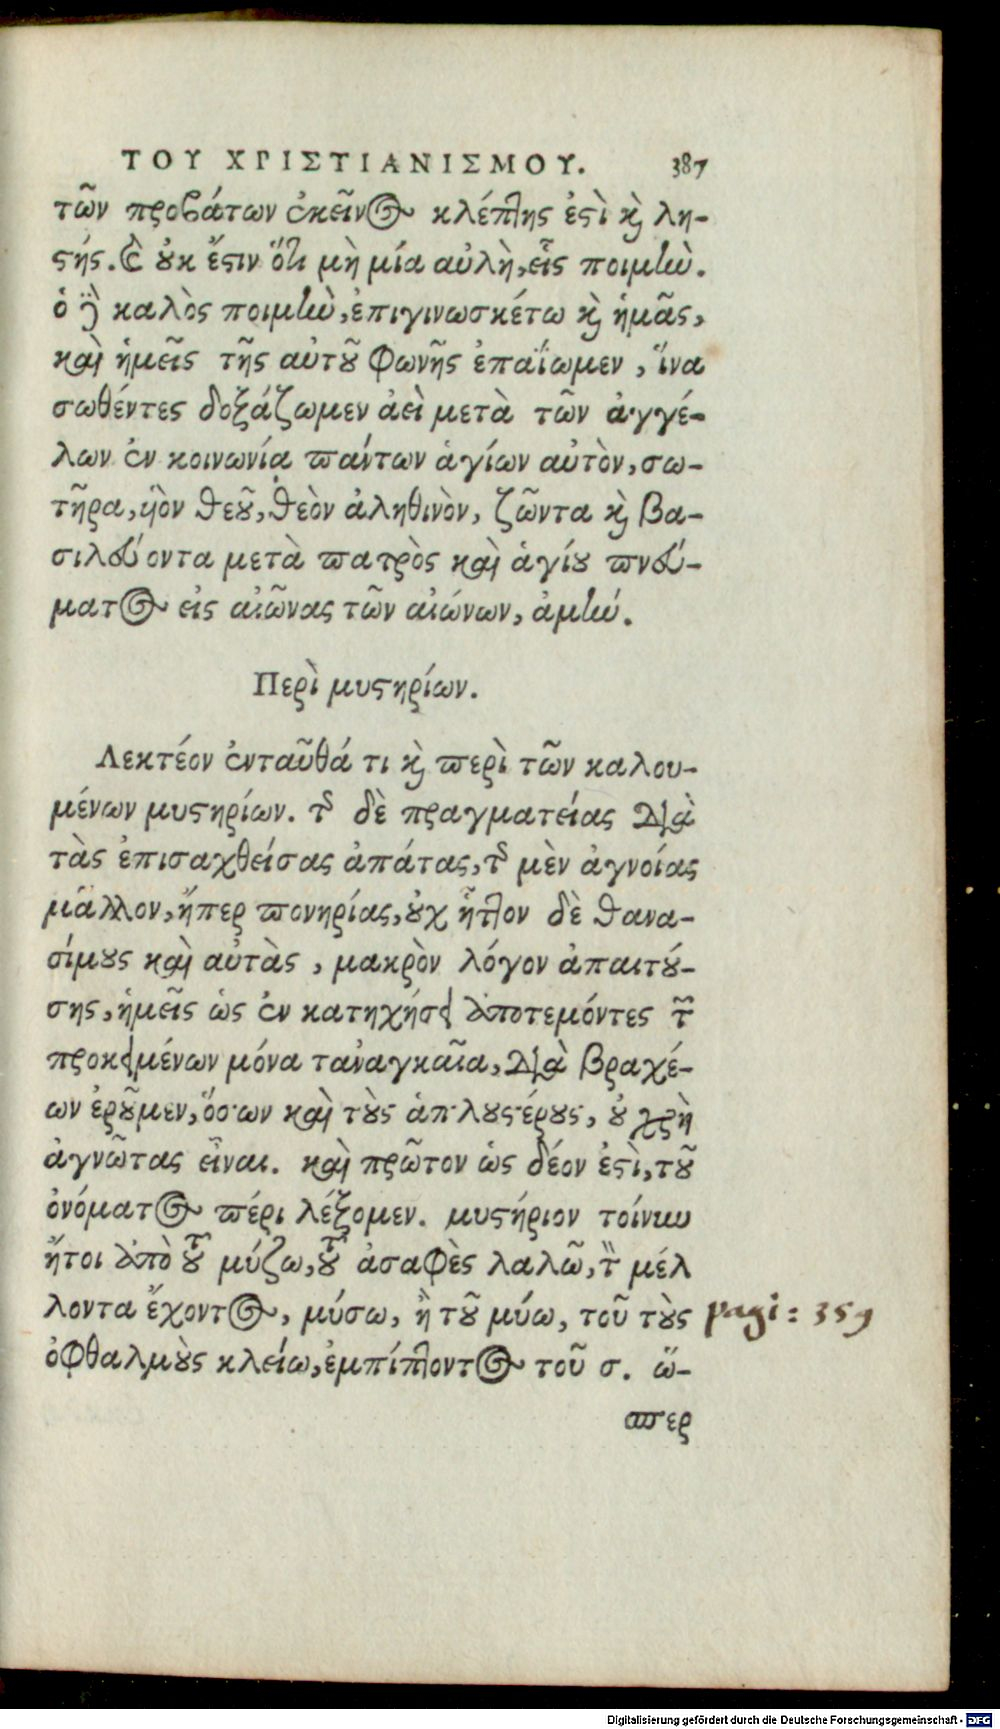 ΤΟΥ ΧΡΙΣΤΙΑΝΙΣΜΟΥ. 387
τῶν προβάτων ἐκεῖνος κλέπτης ἐστὶ καὶ λη-
στής. καὶ οὐκ ἔστιν ὅτι μὴ μία αὐλὴ, εἷς ποιμήν.
ὁ δὲ καλὸς ποιμὴν, ἐπιγινωσκέτω καὶ ἡμᾶς,
καὶ ἡμεῖς τῆς αὐτοῦ φωνῆς ἐπαΐωμεν, ἵνα
σωθέντες δοξάζωμεν ἀεὶ μετὰ τῶν ἀγγέ-
λων ἐν κοινωνίᾳ πάντων ἁγίων αὐτὸν, σω-
τῆρα, ὑὸν θεοῦ, θεὸν ἀληθινὸν, ζῶντα καὶ βα-
σιλεύοντα μετὰ πατρὸς καὶ ἁγίου πνεύ-
ματος εἰς αἰῶνας τῶν αἰώνων, ἀμήν.
Περὶ μυστηρίων.
Λεκτέον ἐνταῦθά τι καὶ περὶ τῶν καλου-
μένων μυστηρίων. τῆς δὲ πραγματείας διὰ
τὰς ἐπισαχθείσας ἀπάτας, τῆς μὲν ἀγνοίας
μᾶλλον, ἤπερ πονηρίας, οὐχ ἧττον δὲ θανα-
σίμους καὶ αὐτὰς, μακρὸν λόγον ἀπαιτού-
σης, ἡμεῖς ὡς ἐν κατηχήσει ἀποτεμόντες τῶν
προκειμένων μόνα τἀναγκαῖα, διὰ βραχέ-
ων ἐροῦμεν, ὅσων καὶ τοὺς ἁπλουστέρους, οὐ χρὴ
ἀγνῶτας εἶναι. καὶ πρῶτον ὡς δέον ἐστὶ, τοῦ
ὀνόματος πέρι λέξομεν. μυστήριον τοίνυν
ἤτοι ἀπὸ τοῦ μύζω, τοῦ ἀσαφὲς λαλῶ, τὸν μέλ
λοντα ἔχοντος, μύσω, ἢ τοῦ μύω, τοῦ τοὺς pagi: 359
ὀφθαλμοὺς κλείω, ἐμπίπτοντος τοῦ σ. ὥ-
σπερ
Digitalisierung gefördert durch die Deutsche Forschungsgemeinschaft - DFG